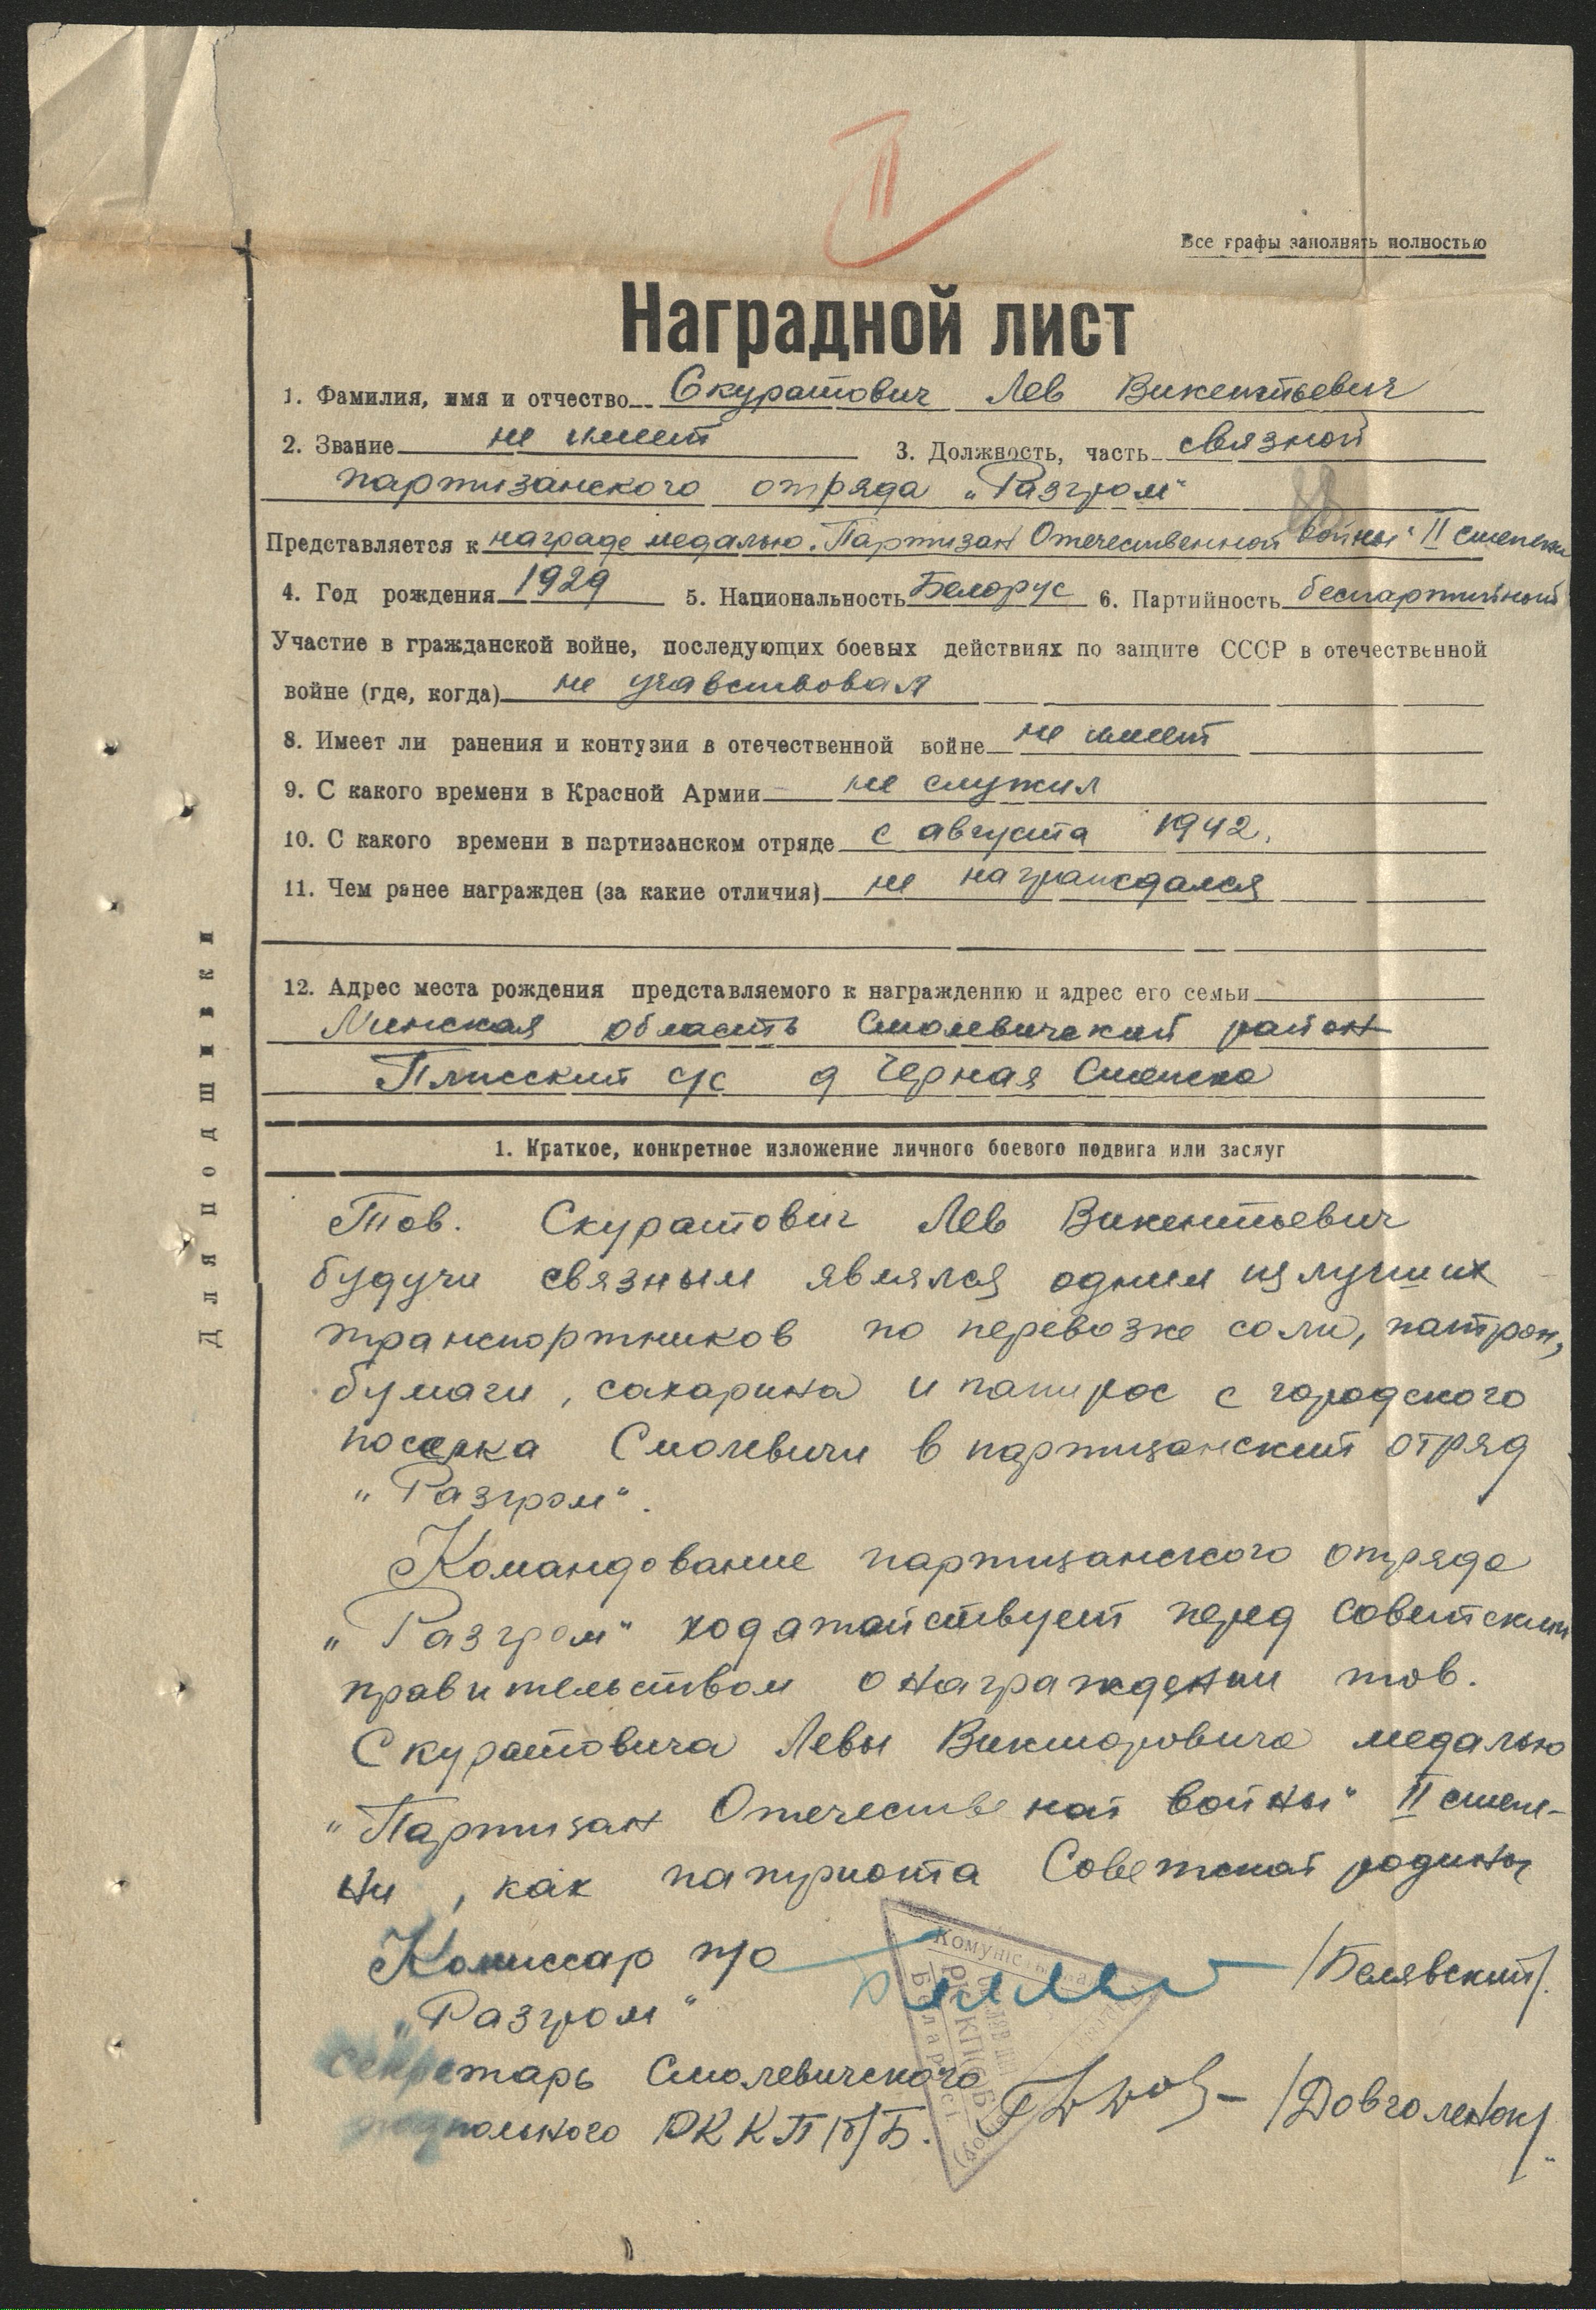 II
Все графы заполнять полностью
Наградной лист
1. Фамилия, имя и отчество Скуратович Лев Викентьевич
2. Звание не имеет 3. Должность, часть связной
партизанского отряда „Разгром“
Представляется к награде медалью „Партизан Отечественной войны“ II степени
4. Год рождения 1929 5. Национальность Белорус 6. Партийность беспартийный
Участие в гражданской войне, последующих боевых действиях по защите СССР в отечественной
войне (где, когда) не учавствовал
8. Имеет ли ранения и контузия в отечественной войне не имеет
9. С какого времени в Красной Армии не служил
10. С какого времени в партизанском отряде с августа 1942.
11. Чем ранее награжден (за какие отличия) не награждался
12. Адрес места рождения представляемого к награждению и адрес его семьи
Минская область Смолевичский район
Плисский с/с д Черная
Для подшивки
1. Краткое, конкретное изложение личного боевого подвига или заслуг
Тов. Скуратович Лев Викентьевич
будучи связным являлся одним из лучших
транспортников по перевозке соли, патрон,
бумаги, сахарина и папирос с городского
поселка Смолевичи в партизанский отряд
„Разгром“.
Командование партизанского отряда
„Разгром“ ходатайствует перед советским
правительством о награждении тов.
Скуратовича Левы Викторовича медалью
„Партизан Отечественой войны“ II степе-
ни, как патриота Советской родины
Комиссар п/о /Белявский/.
„Разгром“
секретарь Смолевичского
подпольного РК КП/б/Б. /Довголенок/.